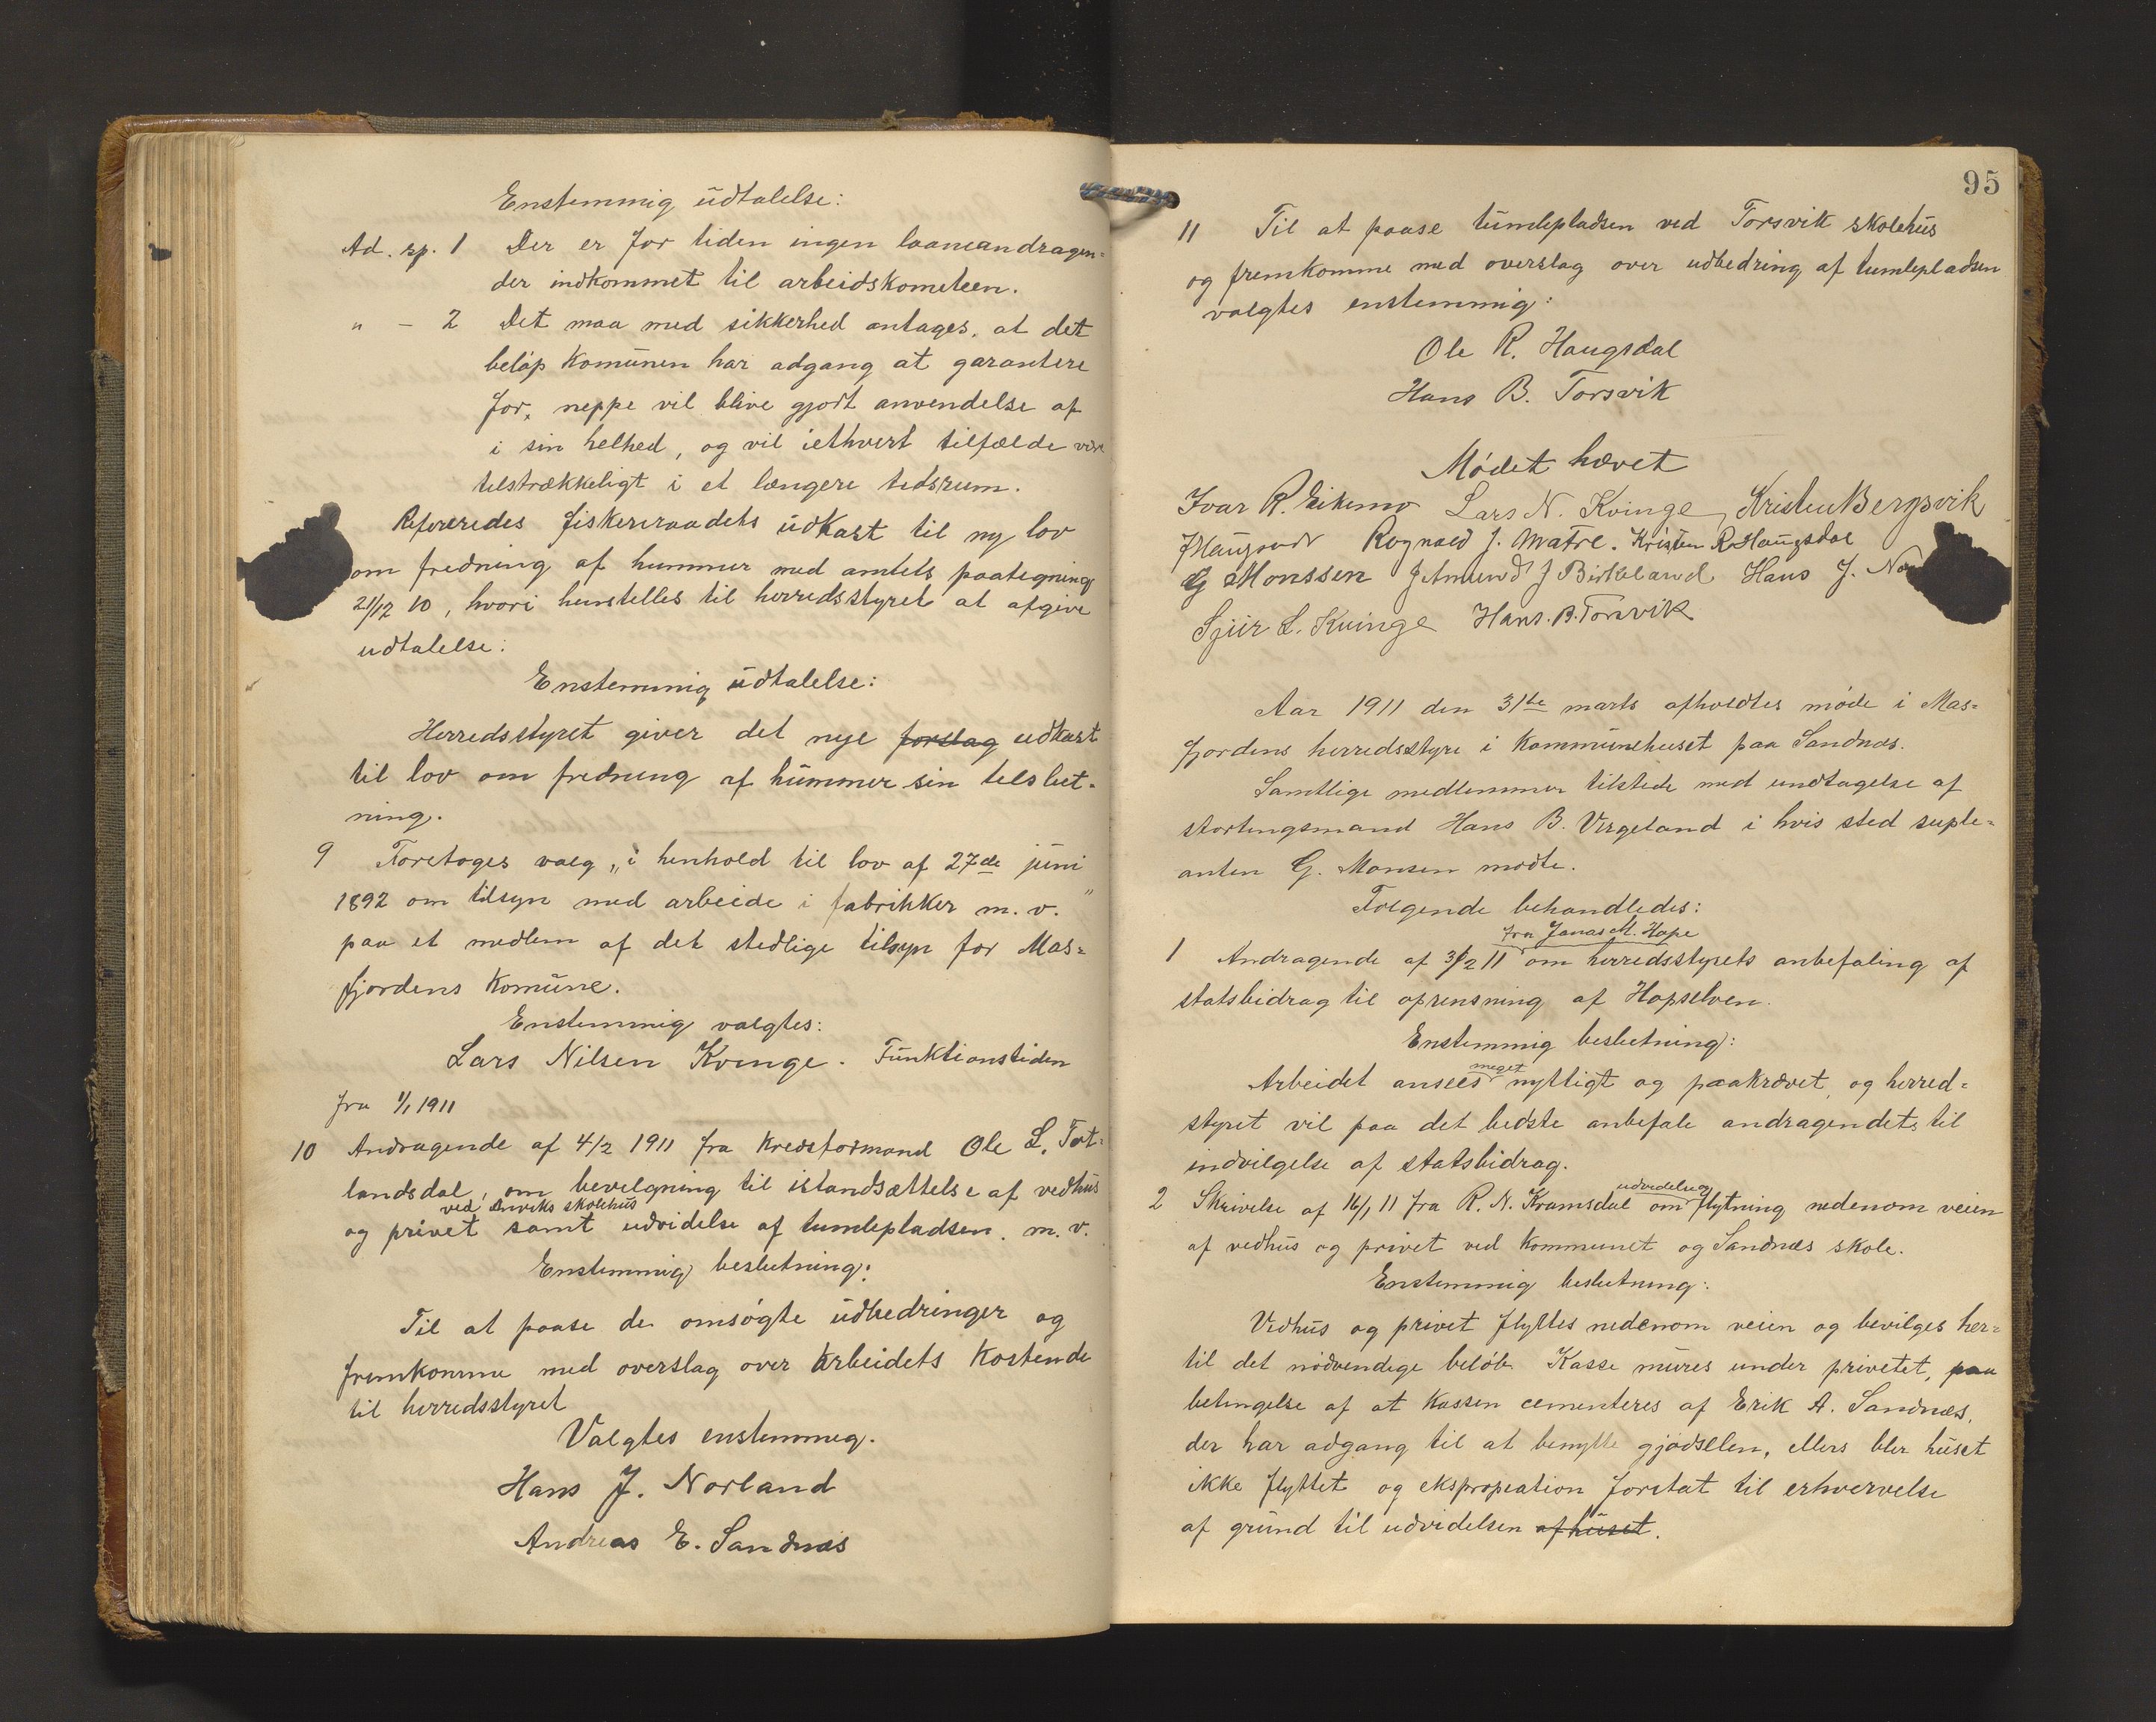 Enstemmig udtalelse:
Ad. sp. 1 Der er for tiden ingen laaneandragen-
der indkommet til arbeidskometeen.
" - 2 Det maa med sikkerhed antages, at det
beløp komunen har adgang at garantere
for, neppe vil blive gjort anvendelse af
i sin helhed, og vil iethvert tilfælde være
tilstrækkeligt i et længere tidsrum.
Refereredes fiskeriraadets udkast til ny lov
om fredning af hummer med amtets paategning
21/12 10, hvori henstilles til herredsstyret at afgive
udtalelse:
Enstemmig udtalelse:
Herredsstyret giver det nye forslag udkast
til lov om fredning af hummer sin tilslut-
ning.
9 Foretoges valg „i henhold til lov af 27de juni
1892 om tilsyn med arbeide i fabrikker m. v."
paa et medlem af det stedlige tilsyn for Mas-
fjordens Komune.
Enstemmig valgtes:
Lars Nilsen Kvinge. Funktionstiden
fra 1/1 1911
10 Andragende af 4/2 1911 fra kredsformand Ole L. Tot-
landsdal, om bevilgning til istandsættelse af vedhus
ved Anviks skolehus
og privet samt udvidelse af tumlepladsen. m. v.
Enstemmig beslutning:
Til at paase de omsøgte udbedringer og
fremkomme med overslag over arbeidets kostende
til herredsstyret
Valgtes enstemmig.
Hans J. Norland
Andreas E. Sandnæs
95
11 Til at paase tumlepladsen ved Torsvik skolehus
og fremkomme med overslag over udbedring af tumlepladsen
valgtes enstemmig:
Ole R. Haugsdal
Hans B. Torsvik
Mødet hævet
Ivar R. Eikemo Lars N. Kvinge, Kristen Bergsvik
Rognald J. Matre. Kristen R. Haugsdal
G Monssen J Amund J Birkeland Hans J. No
Sjur L. Kvinge Hans. B. Torsvik
Aar 1911 den 31te marts afholdtes møde i Mas-
fjordens herredsstyre i Kommunehuset paa Sandnæs.
Samtlige medlemmer tilstede med undtagelse af
stortingsmand Hans B. Virgeland i hvis sted suple-
anten G. Monsen mødte.
Følgende behandledes:
fra Jonas M. Hope
1 Andragende af 3/2 11 om herredsstyrets anbefaling af
statsbidrag til oprensning af Hopselven.
Enstemmig beslutning:
meget
Arbeidet ansees nyttigt og paakrævet, og herred-
styret vil paa det bedste anbefale andragendet til
indvilgelse af statsbidrag.
udvidelse og
2 Skrivelse af 16/1 11 fra R. N. Kramsdal om flytning nedenom veien
af vedhus og privet ved kommunet og Sandnæs skole.
Enstemmig beslutning:
Vedhus og privet flyttes nedenom veien og bevilges her-
til det nødvendige beløb. Kasse mures under privetet, paa
betingelse af at kassen cementeres af Erik A. Sandnæs,
der har adgang til at benytte gjødselen, ellers blir huset
ikke flyttet og ekspropeation foretat til erhvervelse
af grund til udvidelsen af huset.